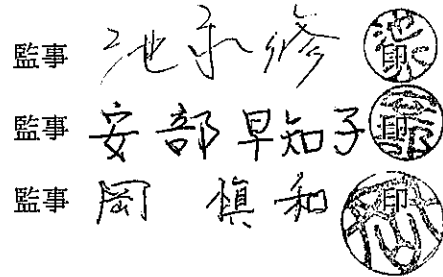 監事 池永修 印
監事 安部早知子 印
監事 岡 慎和 印